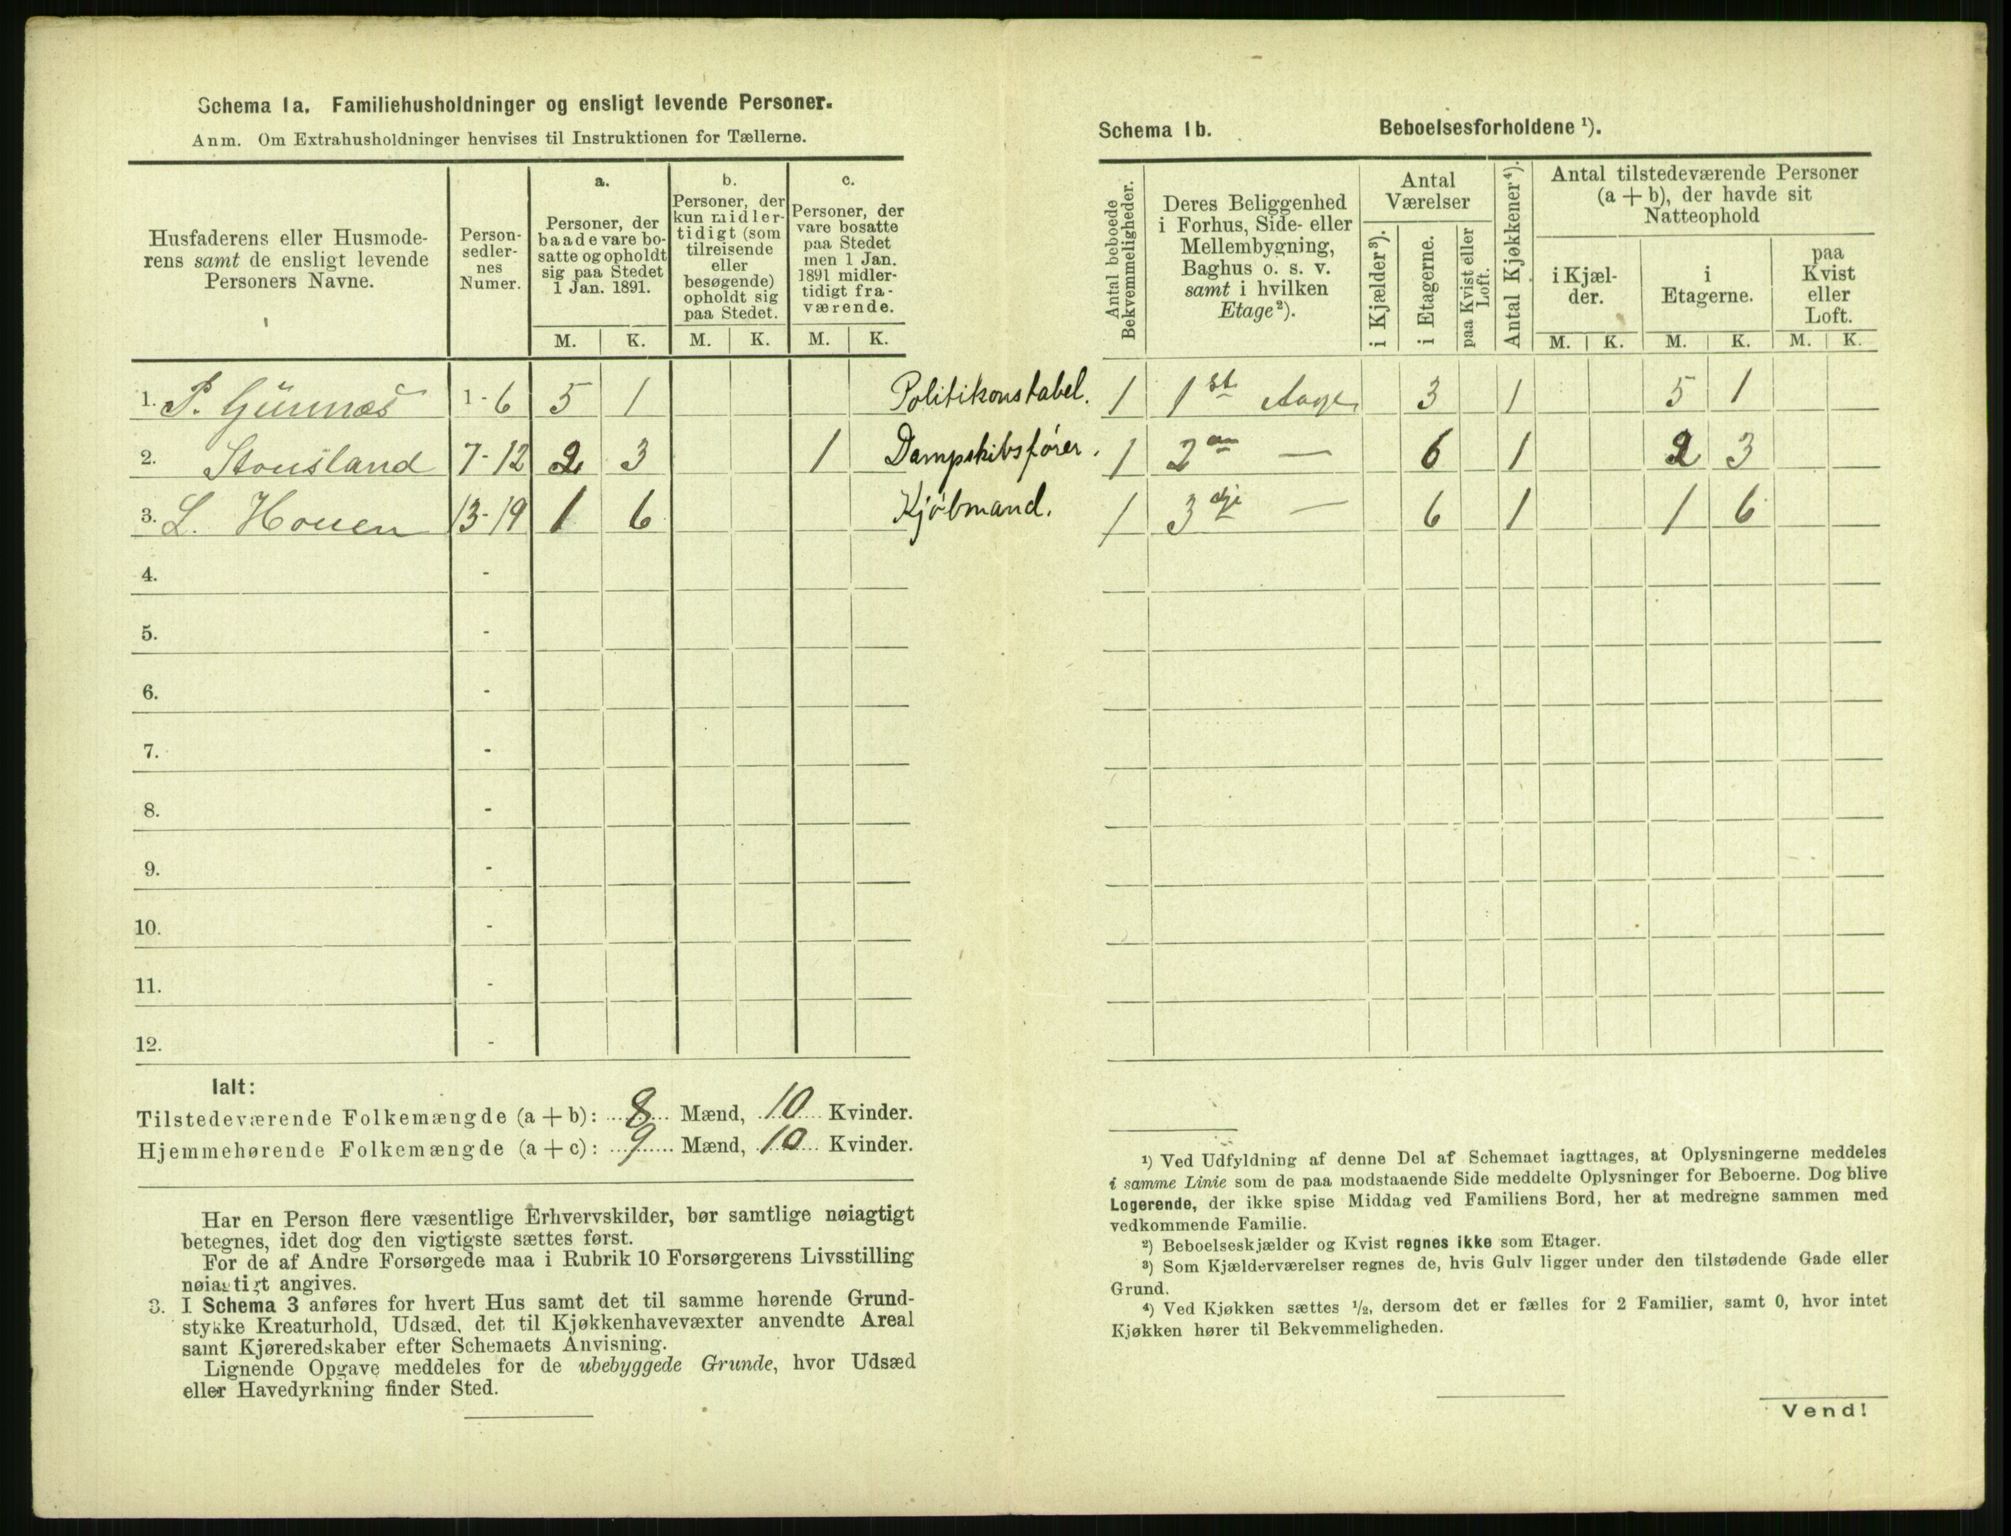 Schema 1a. Familiehusholdninger og ensligt levende Personer.
Anm. Om Extrahusholdninger henvises til Instruktionen for Tællerne.
Husfaderens eller Husmode-
rens samt de ensligt levende
Personers Navne.
Person-
sedler-
nes
Numer.
a.
Personer, der
baade vare bo-
satte og opholdt
sig paa Stedet
1 Jan. 1891.
b.
Personer, der
kun midler-
tidigt (som
tilreisende
eller
besøgende)
opholdt sig
paa Stedet.
c.
Personer, der
vare bosatte
paa Stedet
men 1 Jan.
1891 midler-
tidigt fra-
værende.
M. K. M. K. M. K.
1. P. Günnæs 1-6 5 1 Politikonstabel.
2. Stousland 7-12 2 3 1 Dampskibsfører.
3. L. Houen 13-19 1 6 Kjøbmand.
4. -
5. -
6. -
7. -
8. -
9. -
10. -
11. -
12. -
Ialt:
Tilstedeværende Folkemængde (a + b): 8 Mænd, 10 Kvinder.
Hjemmehørende Folkemængde (a + c): 9 Mænd, 10 Kvinder.
Har en Person flere væsentlige Erhvervskilder, bør samtlige nøiagtigt
betegnes, idet dog den vigtigste sættes først.
For de af Andre Forsørgede maa i Rubrik 10 Forsørgerens Livsstilling
nøiagtigt angives.
3. I Schema 3 anføres for hvert Hus samt det til samme hørende Grund-
stykke Kreaturhold, Udsæd, det til Kjøkkenhavevæxter anvendte Areal
samt Kjøreredskaber efter Schemaets Anvisning.
Lignende Opgave meddeles for de ubebyggede Grunde, hvor Udsæd
eller Havedyrkning finder Sted.
Schema 1b. Beboelsesforholdene ¹).
Antal beboede
Bekvemmeligheder.
Deres Beliggenhed
i Forhus, Side- eller
Mellembygning,
Baghus o. s. v.
samt i hvilken
Etage²).
Antal
Værelser
i Kjælder³).
i Etagerne.
paa Kvist eller
Loft.
Antal Kjøkkener⁴).
Antal tilstedeværende Personer
(a + b), der havde sit
Natteophold
i Kjæl-
der.
i
Etagerne.
paa
Kvist
eller
Loft.
M. K. M. K. M. K.
1 1st 3 1 5 1
1 2en — 6 1 2 3
1 3dje — 6 1 1 6
¹) Ved Udfyldning af denne Del af Schemaet iagttages, at Oplysningerne meddeles
i samme Linie som de paa modstaaende Side meddelte Oplysninger for Beboerne. Dog blive
Logerende, der ikke spise Middag ved Familiens Bord, her at medregne sammen med
vedkommende Familie.
²) Beboelseskjælder og Kvist regnes ikke som Etager.
³) Som Kjælderværelser regnes de, hvis Gulv ligger under den tilstødende Gade eller
Grund.
⁴) Ved Kjøkken sættes ½, dersom det er fælles for 2 Familier, samt 0, hvor intet
Kjøkken hører til Bekvemmeligheden.
Vend!